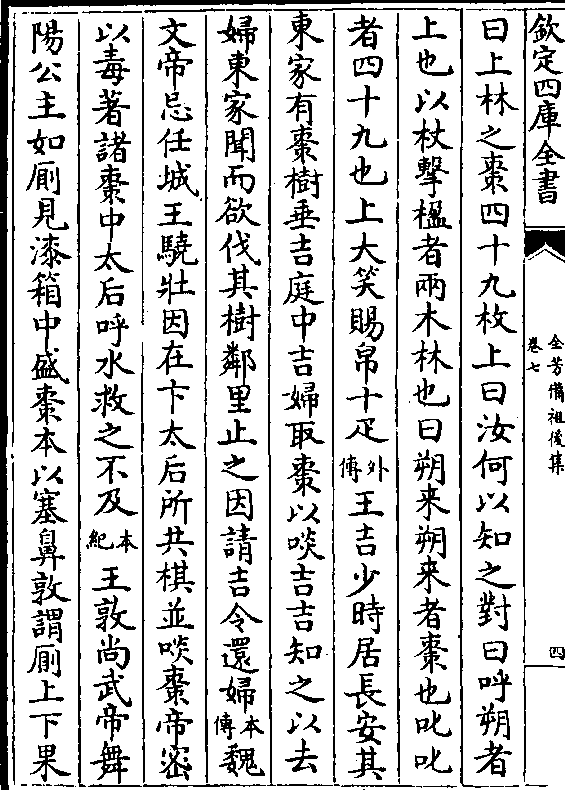 欽定四庫全書
全芳備祖後集
卷七
四
曰上林之棗四十九枚上曰汝何以知之對曰呼朔者
上也以杖擊楹者兩木林也曰朔来朔来者棗也叱叱
者四十九也上大笑賜帛十疋外傳王吉少時居長安其
東家有棗樹垂吉庭中吉婦取棗以啖吉吉知之以去
婦東家聞而欲伐其樹鄰里止之因請吉令還婦本傳魏
文帝忌任城王驍壯因在卞太后所共棋並啖棗帝密
以毒著諸棗中太后呼水救之不及本紀王敦尚武帝舞
陽公主如厠見漆箱中盛棗本以塞鼻敦謂厠上下果